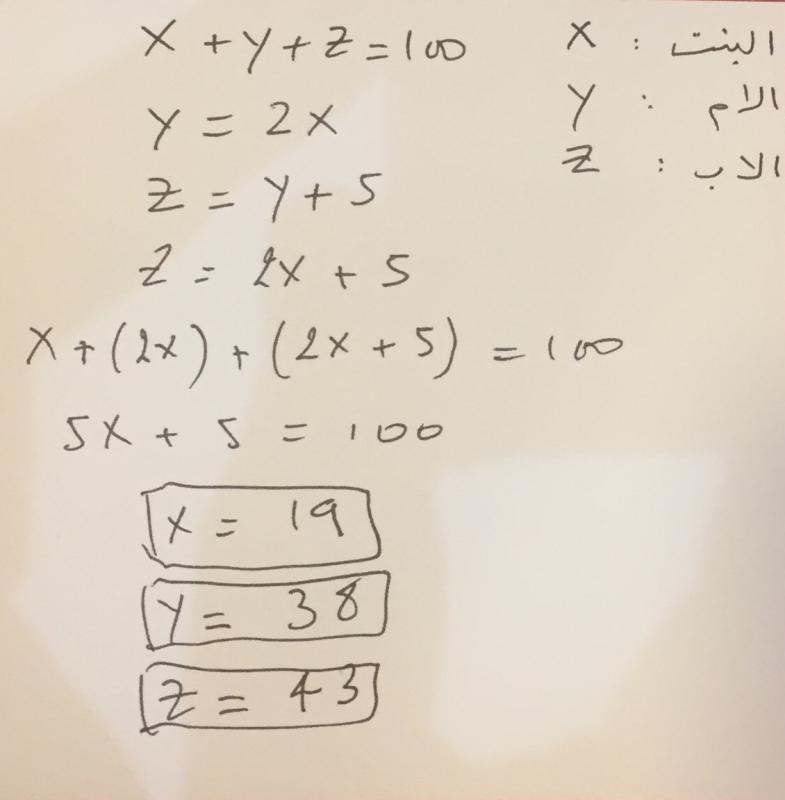 X + y + z = 100
البنت : X
y = 2x
الام : y
z = y + 5
الاب : z
z = 2x + 5
x + (2x) + (2x + 5) = 100
5x + 5 = 100
x = 19
y = 38
z = 43